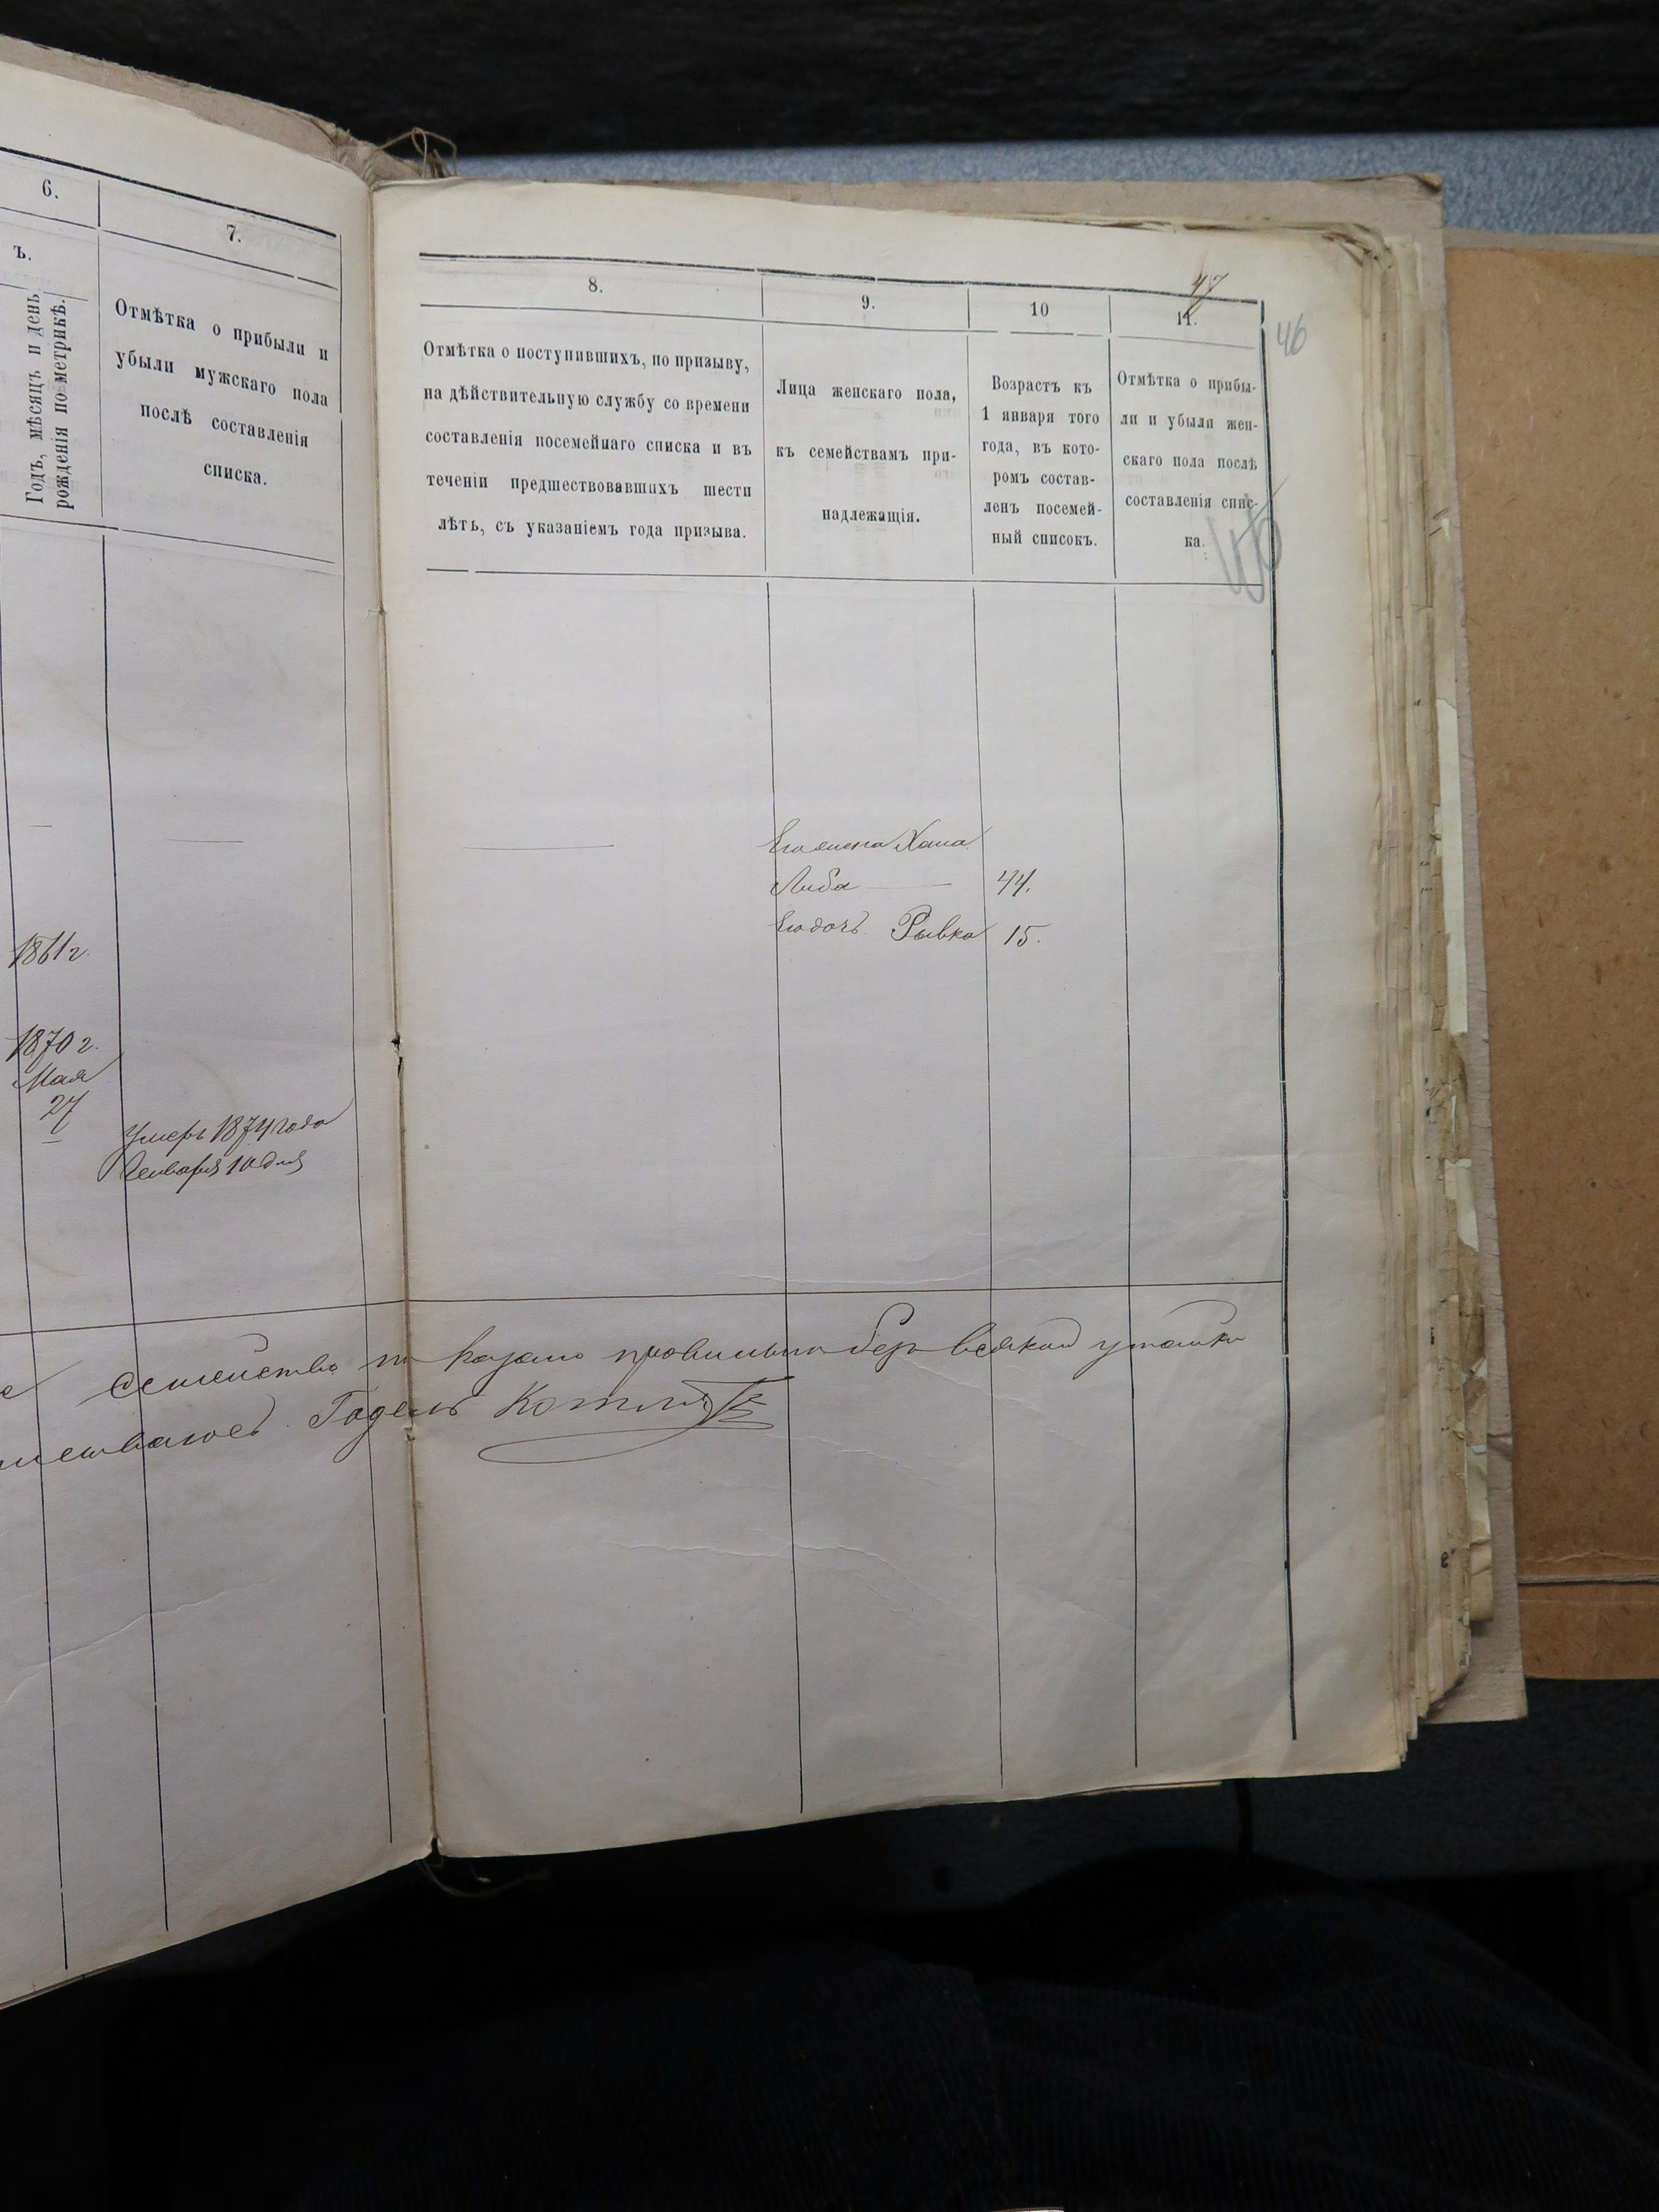 6.
7.
ъ.
Годъ, мѣсяцъ и день
рожденія по метрикѣ.
Отмѣтка о прибыли и
убыли мужскаго пола
послѣ составленія
списка.
1861 г.
1870 г.
Мая
27
Умеръ 1874 года
Января 10 дня
47
46
8.
9.
10
11.
Отмѣтка о поступившихъ, по призыву,
на дѣйствительную службу со времени
составленія посемейнаго списка и въ
теченіи предшествовавшихъ шести
лѣтъ, съ указаніемъ года призыва.
Лица женскаго пола,
къ семействамъ при-
надлежащія.
Возрастъ къ
1 января того
года, въ кото-
ромъ состав-
ленъ посемей-
ный списокъ.
Отмѣтка о прибы-
ли и убыли жен-
скаго пола послѣ
составленія спис-
ка.
Его жена Хана
Либа 44.
Его дочь Рывка 15.
семейство показано правильно без всякой утайки
Годель Котляр